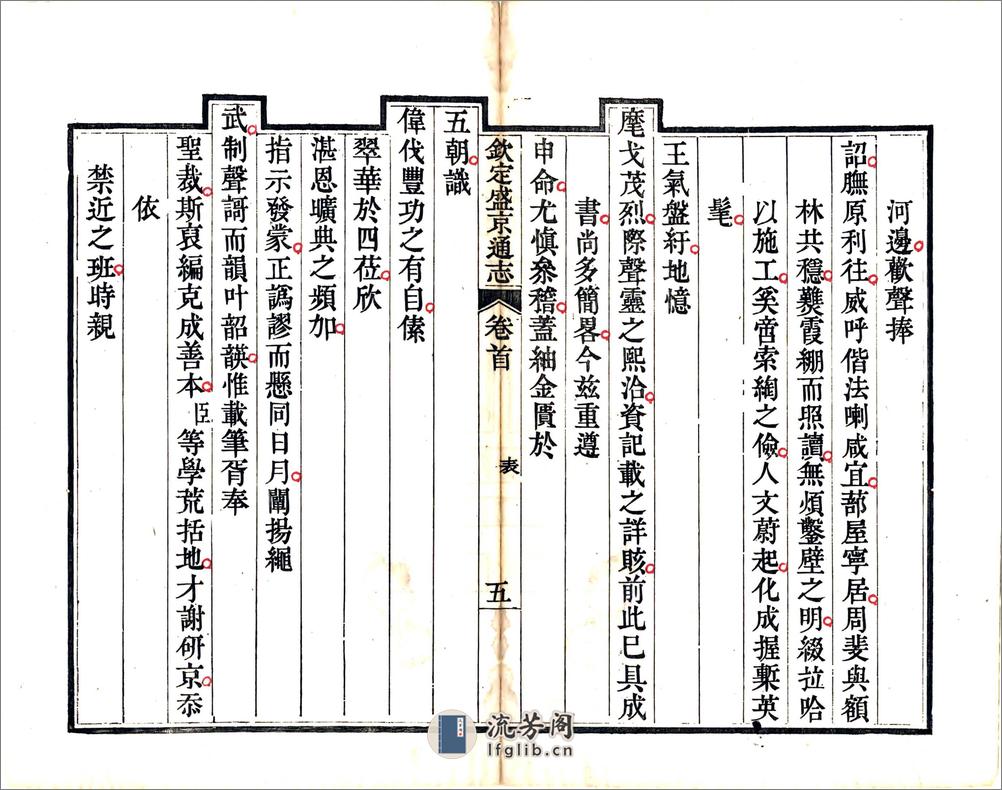 河邊歡聲捧
詔膴原利往威呼偕法喇咸宜蔀屋寧居周斐與額
林共穩爇霞綳而照讀無煩鑿壁之明綴拉哈
以施工奚啻索綯之儉人文蔚起化成握槧英
髦
王氣盤紆地憶
麾戈茂烈際聲靈之熙洽資記載之詳賅前此已具成
書尚多簡畧今兹重遵
申命尤慎叅稽蓋紬金匱於
欽定盛京通志 卷首 表 五
五朝識
偉伐豐功之有自傃
翠華於四莅欣
湛恩曠典之頻加
指示發蒙正譌謬而懸同日月闡揚繩
武制聲謌而韻叶韶韺惟載筆胥奉
聖裁斯裒編克成善本臣等學荒括地才謝硏京忝
依
禁近之班時親
流芳阁
lfglib.cn